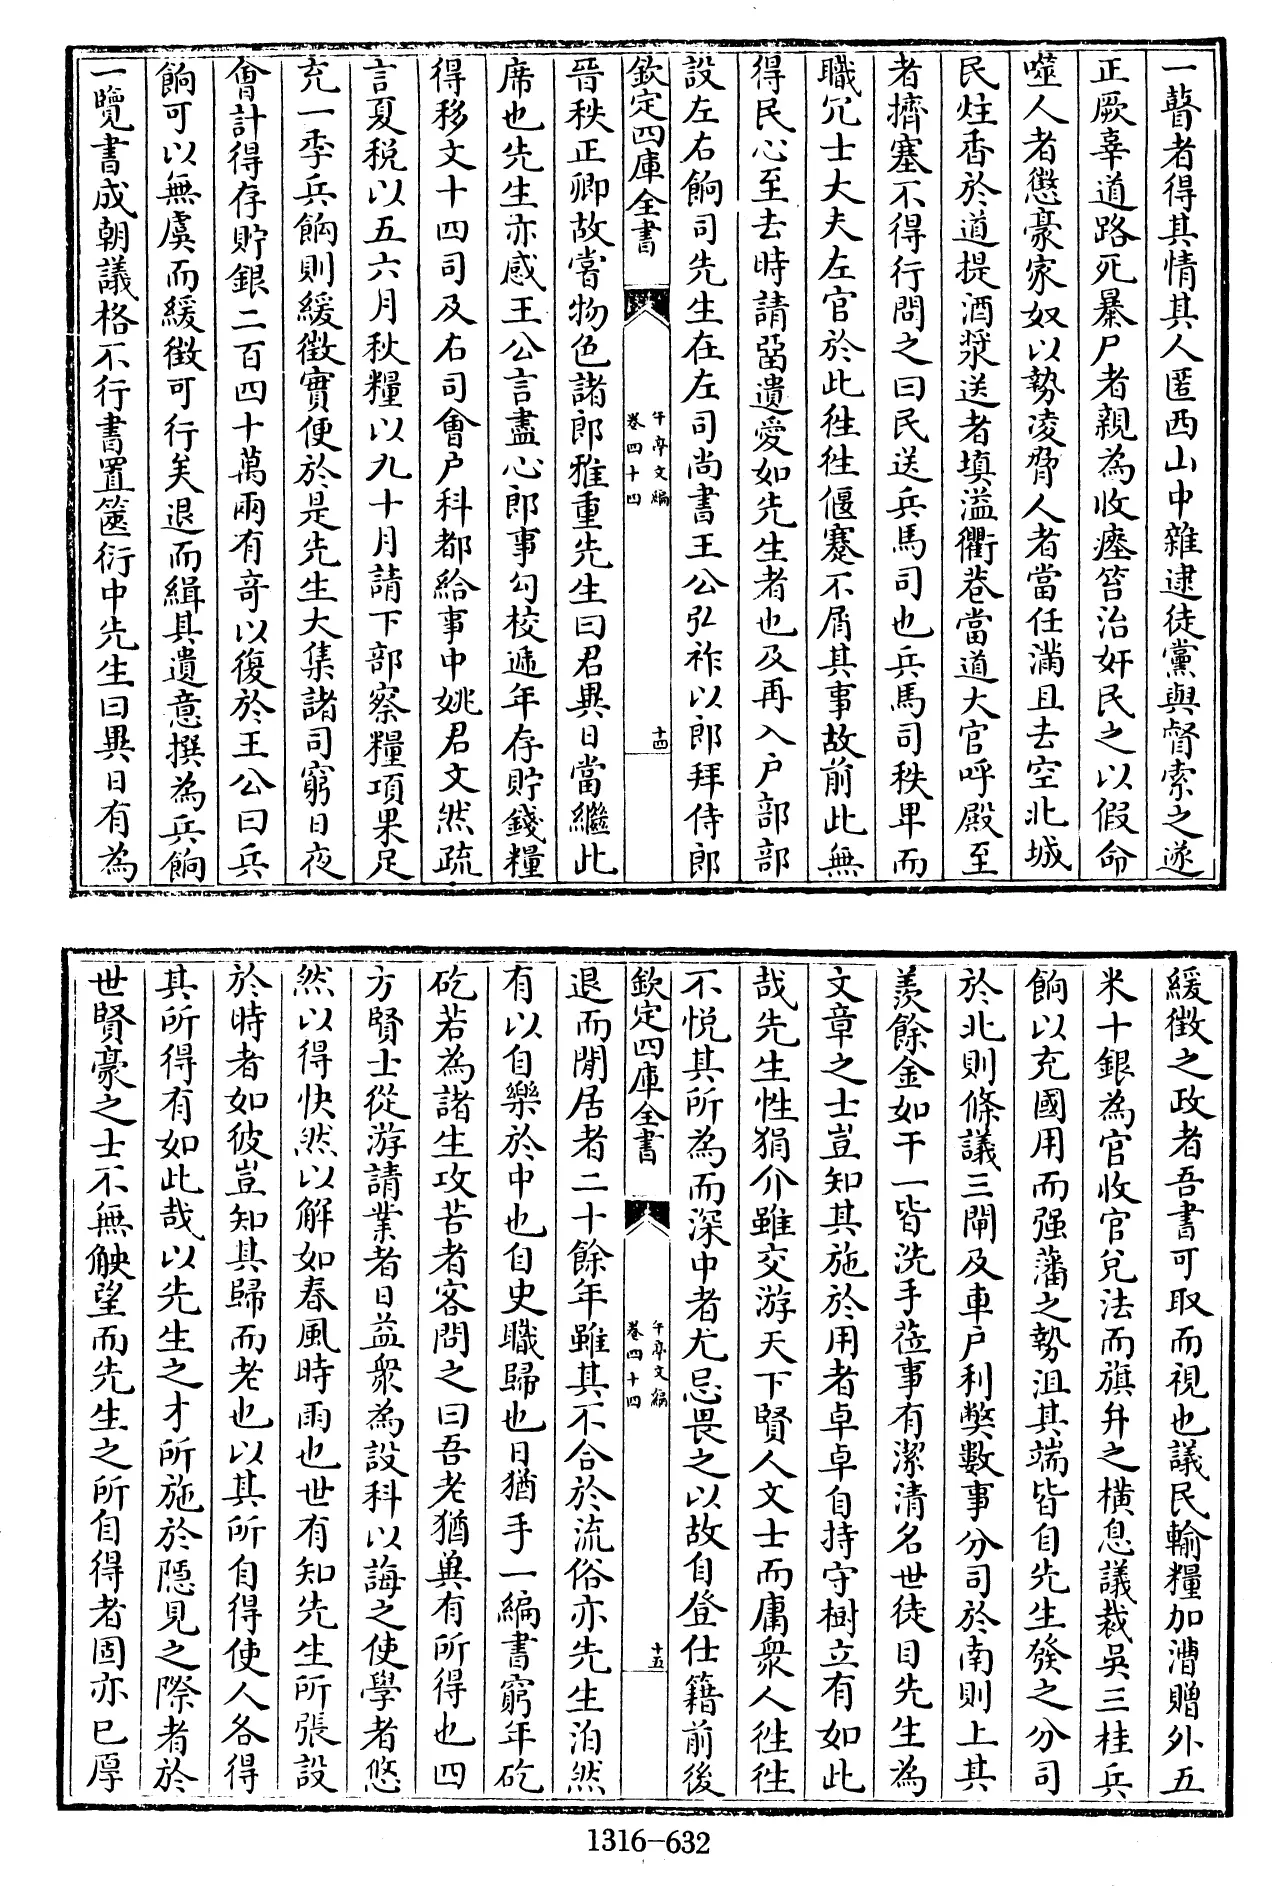 一瞽者得其情其人匿西山中雜逮徒黨與督索之遂
正厥辜道路死暴尸者親為收瘞笞治奸民之以假命
噬人者懲豪家奴以勢凌脅人者當任滿且去空北城
民炷香於道提酒漿送者填溢衢巷當道大官呼殿至
者擠塞不得行問之曰民送兵馬司也兵馬司秩卑而
職冗士大夫左官於此徃徃偃蹇不屑其事故前此無
得民心至去時請留遺愛如先生者也及再入户部部
設左右餉司先生在左司尚書王公弘祚以郎拜侍郎
欽定四庫全書
午亭文編
卷四十四
十四
晉秩正卿故嘗物色諸郎雅重先生曰君異日當繼此
席也先生亦感王公言盡心郎事勾校遞年存貯錢糧
得移文十四司及右司會户科都給事中姚君文然疏
言夏税以五六月秋糧以九十月請下部察糧項果足
充一季兵餉則緩徵實便於是先生大集諸司窮日夜
會計得存貯銀二百四十萬兩有奇以復於王公曰兵
餉可以無虞而緩徵可行矣退而緝其遺意撰為兵餉
一覽書成朝議格不行書置篋衍中先生曰異日有為
緩徵之政者吾書可取而視也議民輸糧加漕贈外五
米十銀為官收官兌法而旗弁之橫息議裁吳三桂兵
餉以充國用而强藩之勢沮其端皆自先生發之分司
於北則條議三閘及車户利弊數事分司於南則上其
羨餘金如干一皆洗手蒞事有潔清名世徒目先生為
文章之士豈知其施於用者卓卓自持守樹立有如此
哉先生性狷介雖交游天下賢人文士而庸衆人徃徃
不悅其所為而深中者尤忌畏之以故自登仕籍前後
欽定四庫全書
午亭文編
卷四十四
十五
退而閒居者二十餘年雖其不合於流俗亦先生泊然
有以自樂於中也自史職歸也日猶手一編書窮年矻
矻若為諸生攻苦者客問之曰吾老猶兾有所得也四
方賢士從游請業者日益衆為設科以誨之使學者悠
然以得快然以解如春風時雨也世有知先生所張設
於時者如彼豈知其歸而老也以其所自得使人各得
其所得有如此哉以先生之才所施於隱見之際者於
世賢豪之士不無觖望而先生之所自得者固亦已厚
1316-632